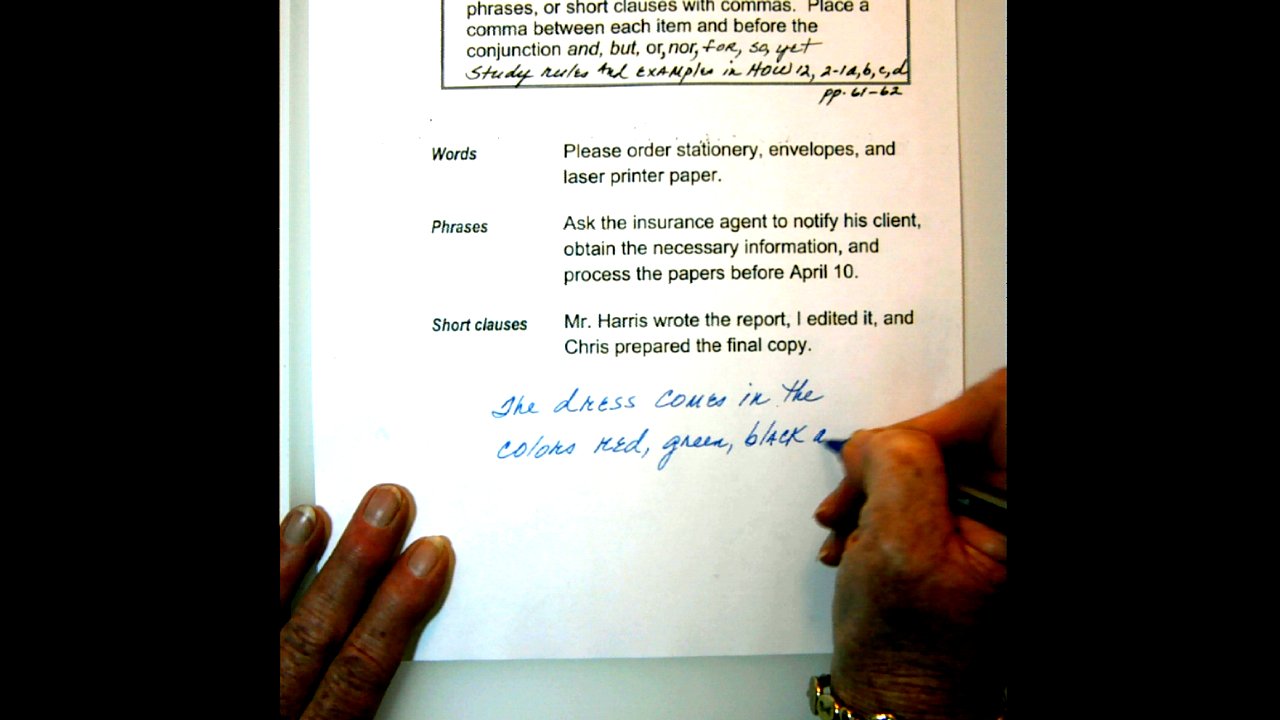 phrases, or short clauses with commas. Place a
comma between each item and before the
conjunction and, but, or, nor, for, so, yet
Study rules and examples in HOW 12, 2-1a,b,c,d
pp. 61-62
Words Please order stationery, envelopes, and
laser printer paper.
Phrases Ask the insurance agent to notify his client,
obtain the necessary information, and
process the papers before April 10.
Short clauses Mr. Harris wrote the report, I edited it, and
Chris prepared the final copy.
The dress comes in the
colors red, green, black a